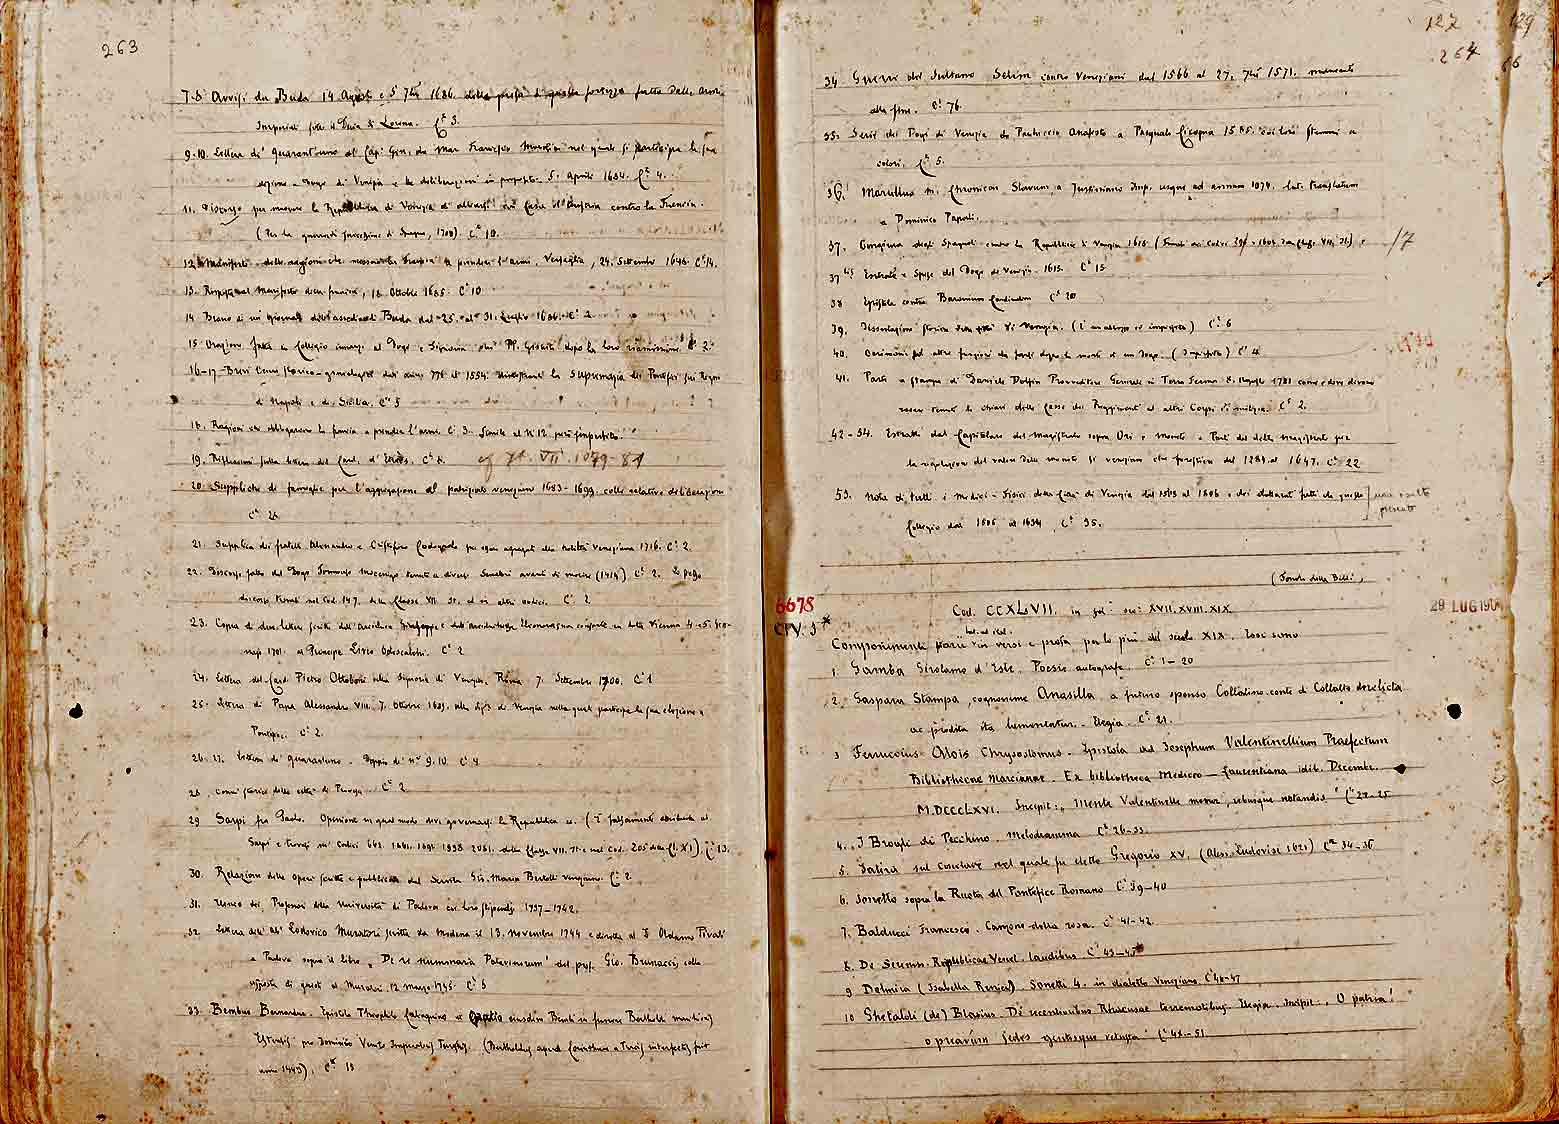 263
7.8 Avvisi da Buda 14 Agosto e 5 7bre 1686. della presa di questa fortezza fatta dalle armi
Imperiali sotto il Duca di Lorena. Cte 3.
9.10. Lettera di Quarant'uno al Cap. Gen. da Mar Francesco Morosini nel quale si partecipa la sua
elezione a Doge di Venezia e le deliberazioni in proposito. 5. Aprile 1684. Cte 4.
11. Discorso per muovere la Repubblica di Venezia ad allearsi con Casa d'Austria contro la Francia.
(Per la guerra di successione di Spagna, 1700) Cte 10.
12. Manifesto delle ragioni che mossero la Francia a prendere l'armi. Versaglia, 24. Settembre 1645. Cte 14.
13. Risposta al Manifesto della Francia, 18 Ottobre 1685. Cte 10
14 Brano di un giornale dell'assedio di Buda dal 25. al 31. Luglio 1686. Cte 2
15 Orazioni fatte in Collegio innanzi al Doge e Signoria dai PP. Gesuiti dopo la loro riammissione. Cte 2.
16-17 Brevi Cenni storico-genealogici dall'anno 776 al 1554 dimostranti la Supremazia dei Pontefici sui Regni
di Napoli e di Sicilia. Cte 5
18. Ragioni che obbligarono la Francia a prendere l'armi. Cte 3. Simile al N. 12 però imperfetto.
19. Riflessioni sulla lettera del Card. d'Etrées. Cte 8. cf It. VII. 1079-81
20 Suppliche di famiglie per l'aggregazione al patriziato veneziano 1683-1699. colle relative deliberazioni
Cte 24
21. Supplica dei fratelli Alessandro e Cristoforo per essere aggregati alla nobiltà veneziana 1716. Cte 2.
22. Discorso fatto dal Doge Tommaso Mocenigo a diversi Senatori avanti di morire (1414) Cte 2. Lo stesso
discorso trovasi nel Cod 147. della Classe VII. It. ed in altri codici. Cte 2
23. Copia di due lettere scritte dall'Arciduca Giuseppe e dall'Arciduchessa Eleonora in data Vienna 4 e 5
1701. al Principe Livio Odescalchi. Cte 2
24. Lettera del Card. Pietro Ottoboni alla Signoria di Venezia. Roma 7. Settembre 1700. Cte 1
25. Lettera di Papa Alessandro VIII. 7. Ottobre 1689. alla Sig. di Venezia nella quale partecipa la sua elezione a
Pontefice. Cte 2.
26. 27. Lettera di Quarantuno. Doppio di n. 9.10. Cte 4
28. Cenni storici delle città di Perugia. Cte 2
29 Sarpi fra Paolo. Opinione in qual modo devi governarsi la Repubblica ec. (È falsamente attribuita al
Sarpi e trovasi nei Codici 642. 1681. 1691 1998 2081. della Classe VII. It e nel Cod. 205 della Cl. XI). Cte 13.
30. Relazione delle Opere scritte e pubblicate dal Servita Gio. Maria Bertolli veneziano. Cte 2
31. Elenco dei Professori della Università di Padova coi loro stipendj. 1737-1742.
32. Lettera dell'Ab. Lodovico Muratori scritta da Modena il 13. novembre 1744 e diretta al S. Oldamo Pivati
a Padova sopra il libro "De re nummaria Patavinorum" del prof. Gio. Brunacci, colla
risposta di questi al Muratori. 12 marzo 1745. Cte 5
33. Bembus Bernardus. Epistola Theophilo Calcagnino et Oratio eiusdem Bembi in funere Bertholdi marchionis
Estensis pro Dominio Veneto Imperatoris Turcis. (Bertholdus apud Corinthum a Turcis interfectus fuit
anno 1463). Cte 13
127 129
264 66
34. Guerre del Sultano Selim contro Veneziani dal 1566 al 27. 7bre 1571. mancante
alla fine. Cte 76.
35. Serie dei Dogi di Venezia da Pauluccio Anafesto a Pasquale Cicogna 1585. coi loro stemmi a
colori. Cte 5.
36. Marullus M. Chronicon Slavum a Justiniano Imp. usque ad annum 1079. lat. translatum
a Dominico Papali.
37. Congiura degli Spagnoli contro la Repubblica di Venezia 1618 (Simile ai Codici 391 e 1604 della Classe VII. It.) Cte 17
37 bis Entrate e Spese del Doge di Venezia. 1615. Cte 15
38 Epistola contra Baronium Cardinalem Cte 20
39. Dissertazione storica della città di Venezia. (È anonimo ed imperfetto) Cte 6
40. Cerimonie ed altre funzioni da farsi dopo la morte di un Doge. (Imperfetto) Cte 4
41. Parte a stampa di Daniele Dolfin Provveditore Generale in Terra Ferma 8. Agosto 1781 come e dove devono
esser tenute le chiavi delle Casse dei Reggimenti ed altri Corpi di milizia. Cte 2.
42-54. Estratti dal Capitolare del Magistrato sopra Ori e Monete e Parti del detto magistrato per
la regolazione del valore delle monete sì veneziane che forestiere dal 1284 al 1647. Cte 22
55. Nota di tutti i Medici-Fisici della Città di Venezia dal 1585 al 1806 e dei dottorati fatti da questo
Collegio dal 1606 al 1634. Cte 35.
(Fondo della Bibl.)
6678
CPV. 3*
Cod. CCXLVII in fol. sec. XVII. XVIII. XIX
29 LUG 190
lat. ed ital.
Componimenti varii in versi e prosa per lo più del secolo XIX. Essi sono
1. Gamba Girolamo d'Este. Poesie autografe. Cte 1-20
2. Gaspara Stampa, cognomine Anasilla a futuro sponso Collatino conte di Collalto derelicta
ac prodita ita lamentatur. Elegia. Cte 21.
3 Ferruccius Alois Chrysostomus. Epistola ad Josephum Valentinellium Praefectum
Bibliothecae Marcianae. Ex bibliotheca Mediceo-Laurentiana idib. Decembr.
M.DCCCLXVI. Incipit: "Mente Valentinelle memor, rebusque notandis" Cte 22-25
4. I Broufi di Pecchino. Melodramma Cte 26-33.
5. Satira sul conclave nel quale fu eletto Gregorio XV. (Aless. Ludovisi 1621) Cte 34-36
6. Sonetto sopra la Ruota del Pontefice Romano Cte 39-40
7. Balducci Francesco. Canzone della rosa. Cte 41-42.
8. De Summ. Republicae Venet. laudibus Cte 43-45
9 Delmira (Isabella Renier). Sonetti 4. in dialetto Veneziano. Cte 46-47
10 Stefaldi (de) Blasius. De recentioribus Rhacusae terremotibus Elegia. Incipit: "O patria!
o praeavúm Sedes gentisque vetusta" Cte 48-51